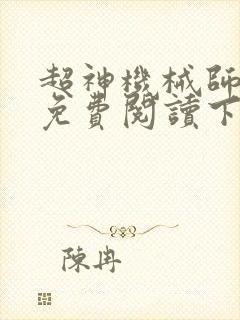 超神機械師
免費閱讀下
陳冉